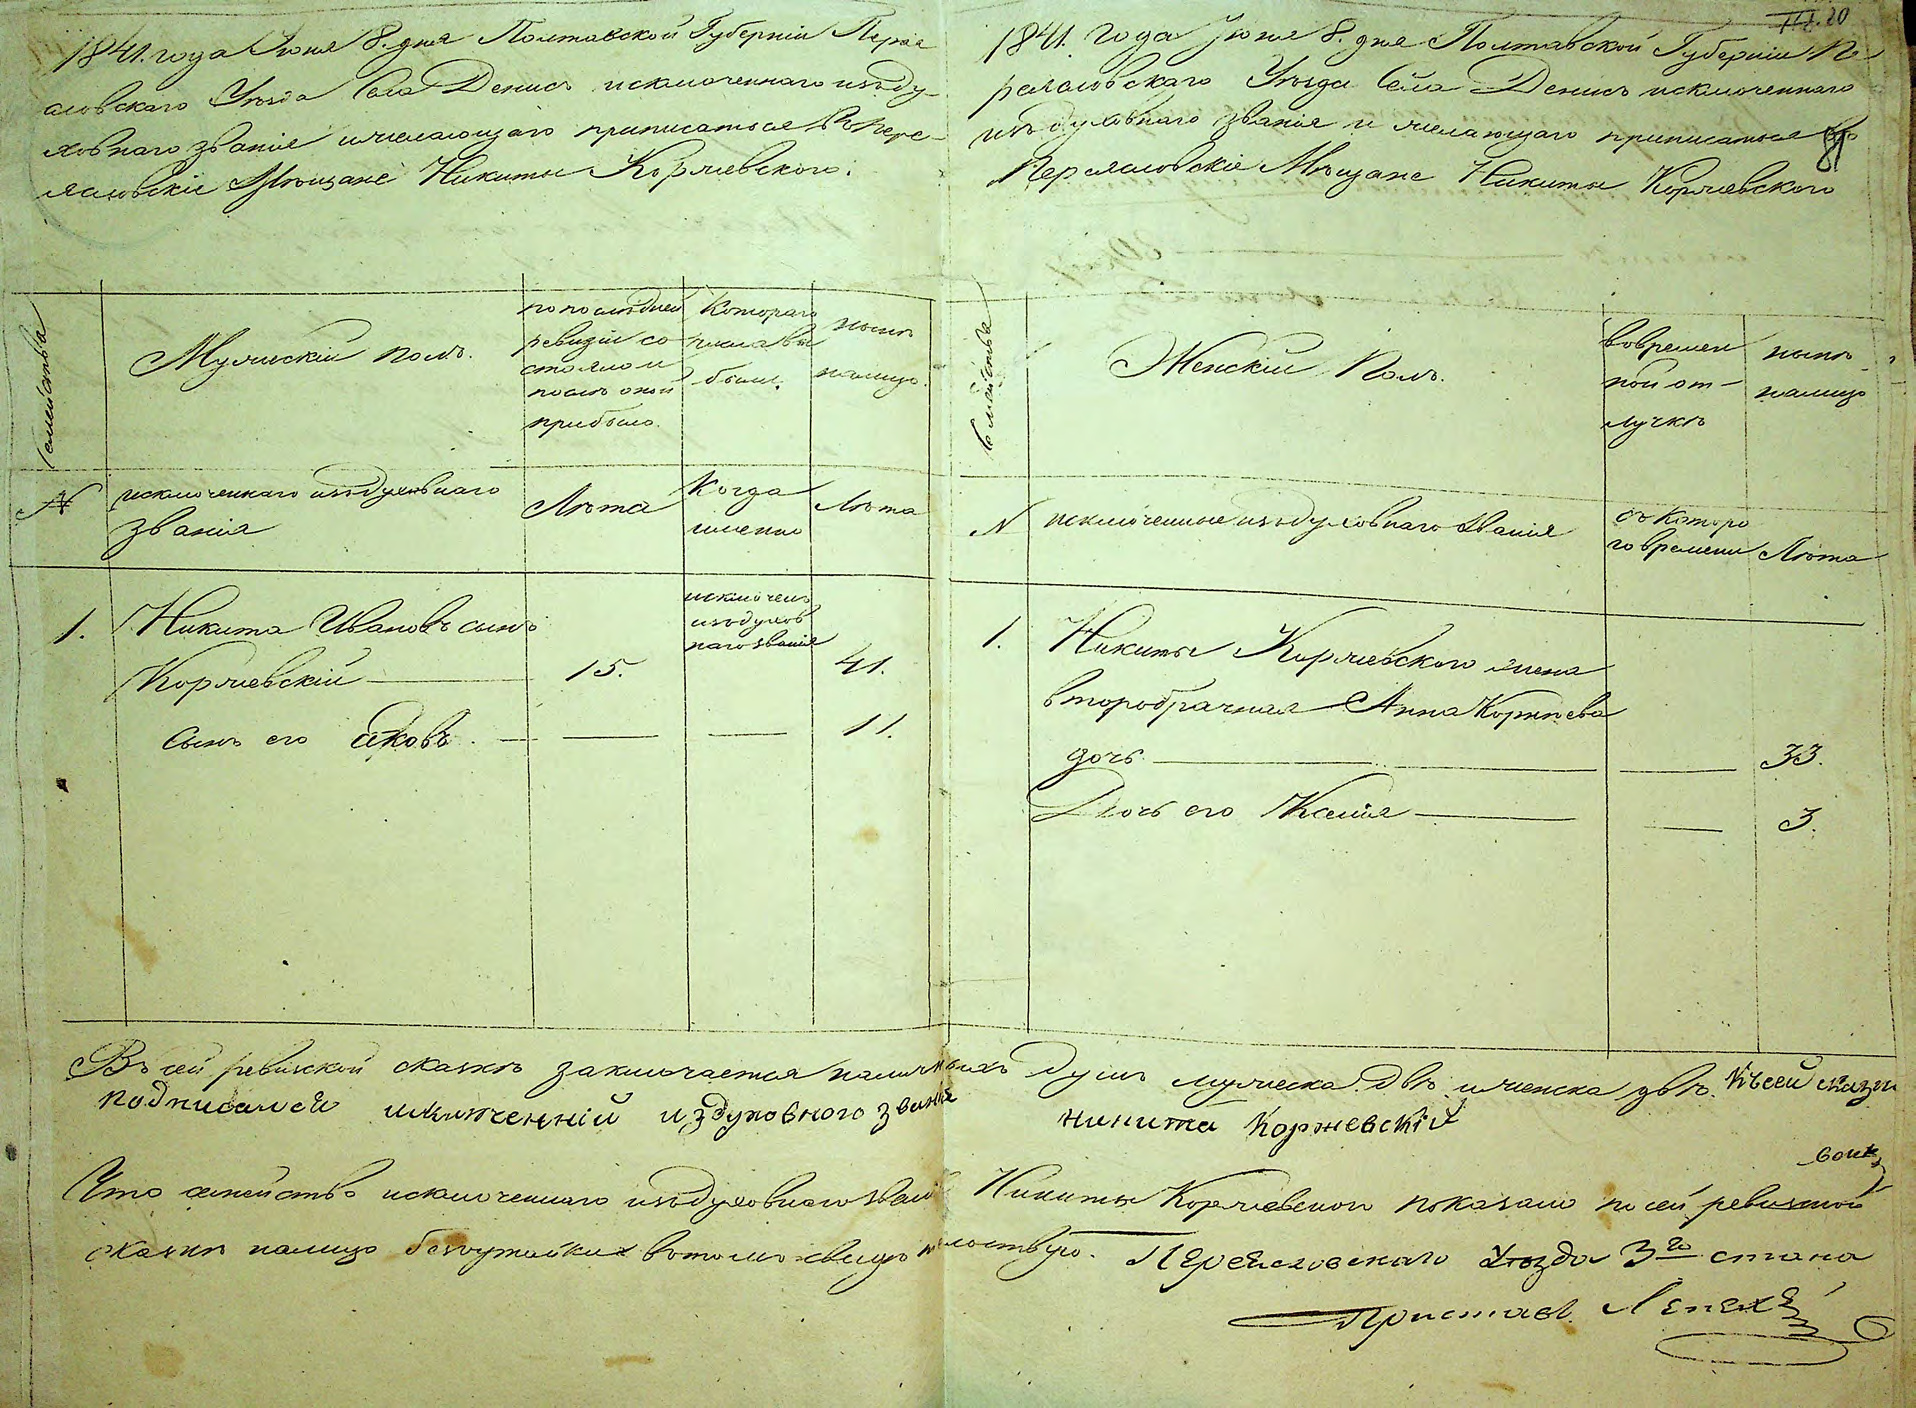 1841. года Іюня 8. дня Полтавской Губерніи Перея
словскаго Уѣзда Села Денисъ исключеннаго изъ ду-
ховнаго званія и желающаго приписаться въ Пере-
яславскіе Мѣщане Никиты Коржевского.
Семейства
Мужескій полъ.
по последней
ревизіи со
стояло и
послѣ оной
прибыло.
Котораго
числа вы
были.
нынѣ
налицо.
№
исключеннаго изъ духовнаго
званія
Лѣта
Когда
именно
Лѣта
1.
Никита Ивановъ сынъ
Коржевскій
15.
исключенъ
изъ духов
наго званія
41.
сынъ его Яковъ.
11.
III.20
1841. Года Іюня 8. дня Полтавской Губерніи Пе-
реяславскаго Уѣзда Села Денисъ исключеннаго
изъ духовнаго званія и желающаго приписаться въ
Переяславскіе Мѣщане Никиты Коржевского
81
Семейства
Женскій Полъ.
во времен
ной от-
лучкѣ
нынѣ
налицо
№
исключенные изъ духовнаго званія
съ которо
го времени
Лѣта
1.
Никиты Коржевского жена
второбрачная Анна Корнѣева
дочь
33.
Дочь его Ксенія
3.
Въ сей ревизской сказкѣ заключается наличныхъ душъ мужеска двѣ и женска двѣ. Къ сей сказки
подписался исключенній из духовного званія Никита Коржевскій
Что семейство исключеннаго изъ духовнаго званія Никиты Коржевского показано по сей ревизской
сказкѣ налицо безъ утайки въ томъ свидѣтельствую. Переяславскаго Уѣзда 3го стана
Приставъ